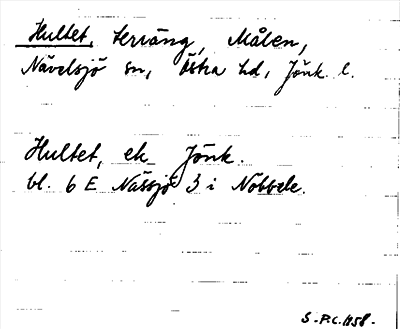 Hultet, terräng, Målen,
Nävelsjö sn, Östra hd, Jönk l.
Hultet, ek Jönk.
bl. 6 E Nässjö 3 i Nobbele.
S-P.C. 1958.